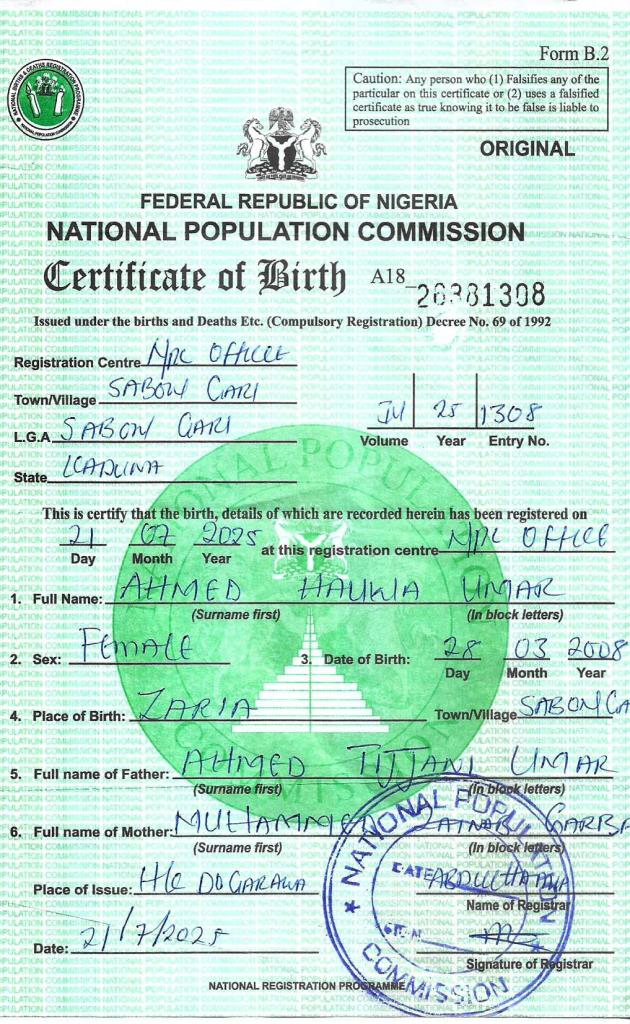 Form B.2
Caution: Any person who (1) Falsifies any of the
particular on this certificate or (2) uses a falsified
certificate as true knowing it to be false is liable to
prosecution
ORIGINAL
FEDERAL REPUBLIC OF NIGERIA
NATIONAL POPULATION COMMISSION
Certificate of Birth A18_26381308
Issued under the births and Deaths Etc. (Compulsory Registration) Decree No. 69 of 1992
Registration Centre NPC OFFICE
Town/Village SABON GARI
L.G.A SABON GARI
IV 25 1308
Volume Year Entry No.
State KADUNA
This is certify that the birth, details of which are recorded herein has been registered on
21 07 2025 at this registration centre NPC OFFICE
Day Month Year
1. Full Name: AHMED HAUWA UMAR
(Surname first) (In block letters)
2. Sex: FEMALE 3. Date of Birth: 28 03 2008
Day Month Year
4. Place of Birth: ZARIA Town/Village SABON GA
5. Full name of Father: AHMED TIJJANI UMAR
(Surname first) (In block letters)
6. Full name of Mother: MUHAMMED ZAINAB GARBA
(Surname first) (In block letters)
Place of Issue: H/Q DOGARAWA
Name of Registrar
Date: 21/7/2025
Signature of Registrar
NATIONAL REGISTRATION PROGRAMME
NATIONAL POPULATION COMMISSION
DATE
SIGN